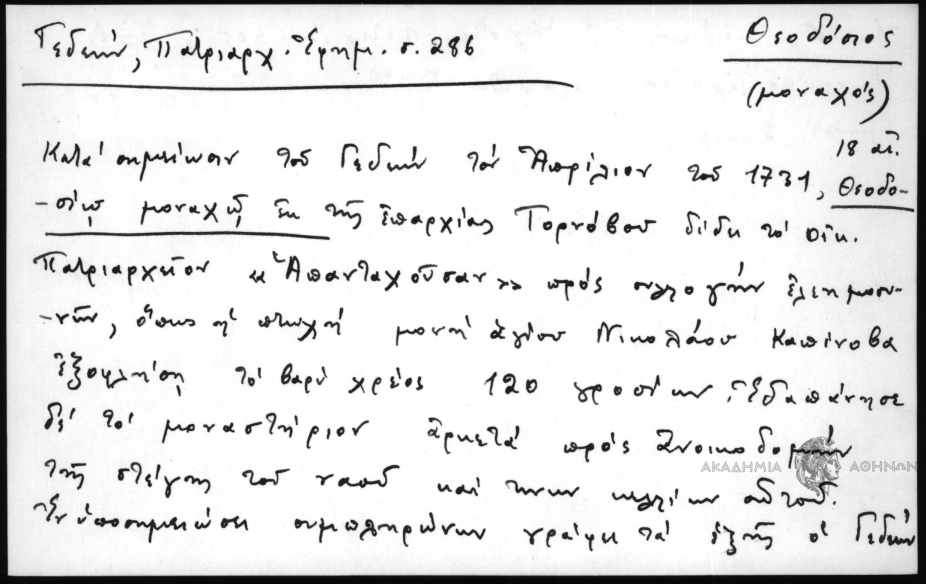 Γεδεών, Πατριαρχ. Ἐφημ. σ. 286
Θεοδόσιος
(μοναχός)
18 αἰ.
Κατά σημείωσιν τοῦ Γεδεών τόν Ἀπρίλιον τοῦ 1731, Θεοδο-
-σίῳ μοναχῷ ἐκ τῆς ἐπαρχίας Τορνόβου δίδει τό οἰκ.
Πατριαρχεῖον «Ἀπανταχοῦσαν» πρός συλλογήν ἐλεημοσυ-
-νῶν, ὅπως ἡ πτωχή μονή ἁγίου Νικολάου Καπίνοβα
ἐξοφλήσῃ τό βαρύ χρέος 120 γροσίων. Ἐδαπάνησε
δέ τό μοναστήριον ἀρκετά πρός ἀνοικοδομήν
τῆς στέγης τοῦ ναοῦ καί τινων κελλίων αὐτοῦ.
Ἐν ὑποσημειώσει συμπληρώνων γράφει τά ἑξῆς ὁ Γεδεών
ΑΚΑΔΗΜΙΑ ΑΘΗΝΩΝ